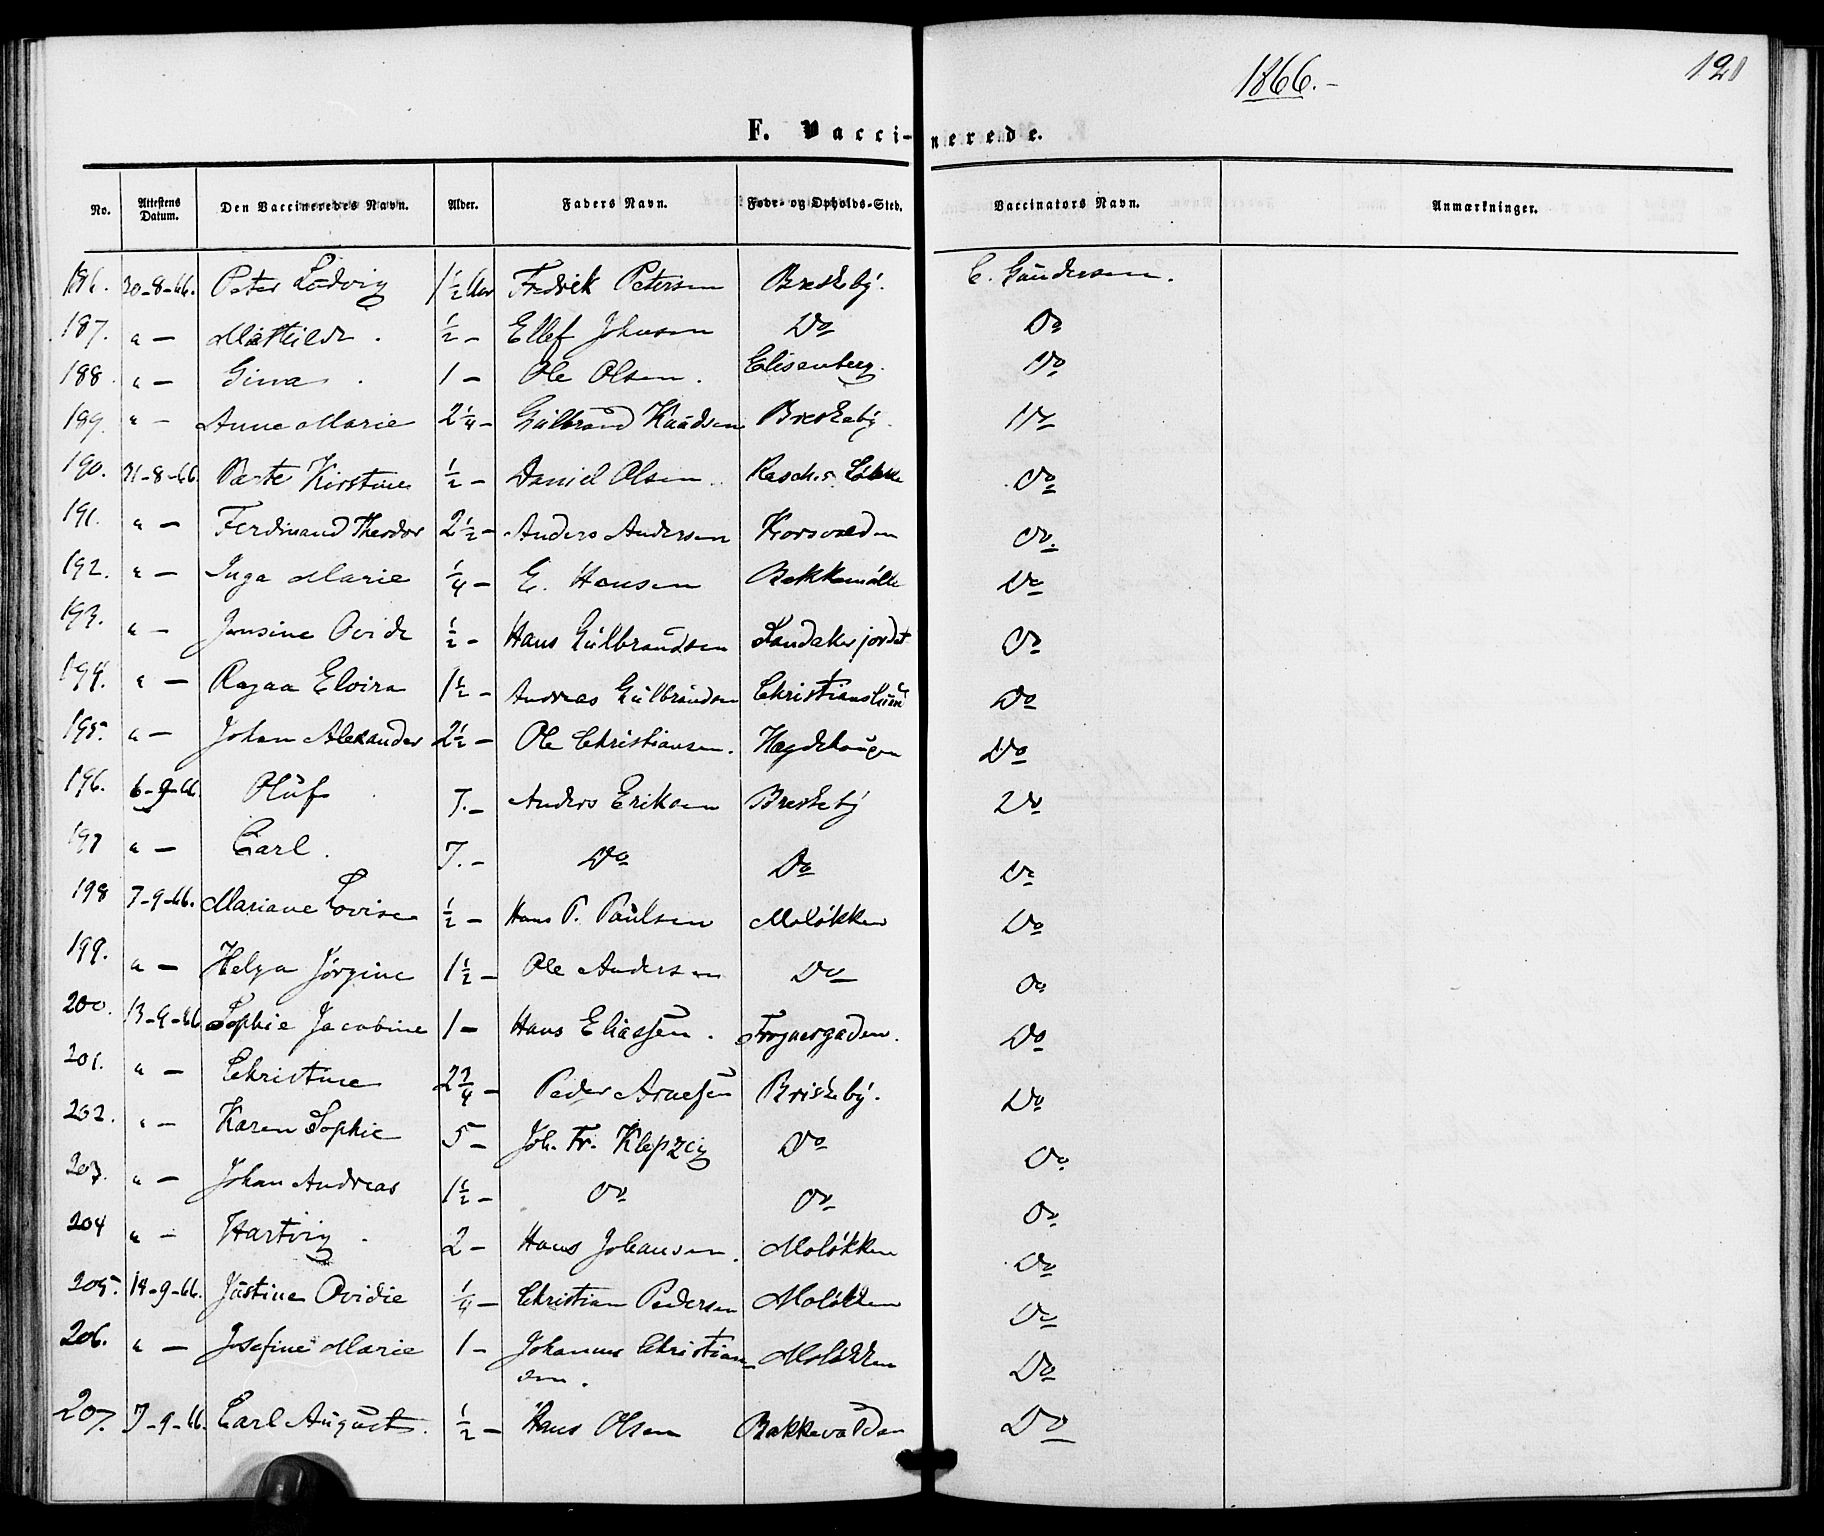 1866.-
121
F. Vaccinerede.
No. Attestens Datum. Den Vaccineredes Navn. Alder. Faders Navn. Føde- og Opholds-Sted. Vaccinators Navn. Anmærkninger.
186. 20-8-66. Peter Lodvig 1½ Aar Fredrik Petersen Breskeby. C. Gundersen.
187. " — Mathilde. ½ - Ellef Johnsen Do Do
188. " — Gina. 1 - Ole Olsen. Elisenberg. Do
189. " - Anne Marie 2¼ - Gulbrand Knudsen Breskeby. Do
190. 31-8-66. Berte Kirstine ½ - Daniel Olsen. Rasch's Løkke Do
191. " — Ferdinand Theodor 2½ - Anders Andersen Korsvolden Do.
192. " — Inga Marie ¼ - E. Hansen Bakkemølle Do
193. " — Jensine Ovide ½ - Hans Gulbrandsen Sandakerjordet Do
194. " — Ragna Elvira 1½ - Andreas Gulbrandsen Christianslund Do
195. " — Johan Alexander 2½ - Ole Christiansen. Hægdehaugen Do
196. 6-9-66. Oluf 7. - Anders Eriksen Breskeby Do
197 " — Carl. 7. - Do Do Do
198 7-9-66. Mariane Lovise ½ - Hans P. Paulsen Moløkken Do
199. " — Helga Jørgine 1½ - Ole Andersen Do Do
200. 13-9-66 Sophie Jacobine 1 - Hans Eliassen. Frognergaden. Do
201. " — Christine 2¾ - Peder Arnesen Briskeby. Do
202. " — Karen Sophie 5 - Joh. Fr. Klepzig Do Do
203. " — Johan Andreas 1½ - Do Do Do
204 " — Hartvig. 2 - Hans Johansen. Moløkken Do
205. 14-9-66. Justine Ovidie ¼ - Christian Pedersen Moløkken Do
206. " — Josefine Marie 1 - Johannes Christian-
sen. Moløkken Do
207. 7-9-66. Carl August. ½ - Hans Olsen Bakkevolden Do